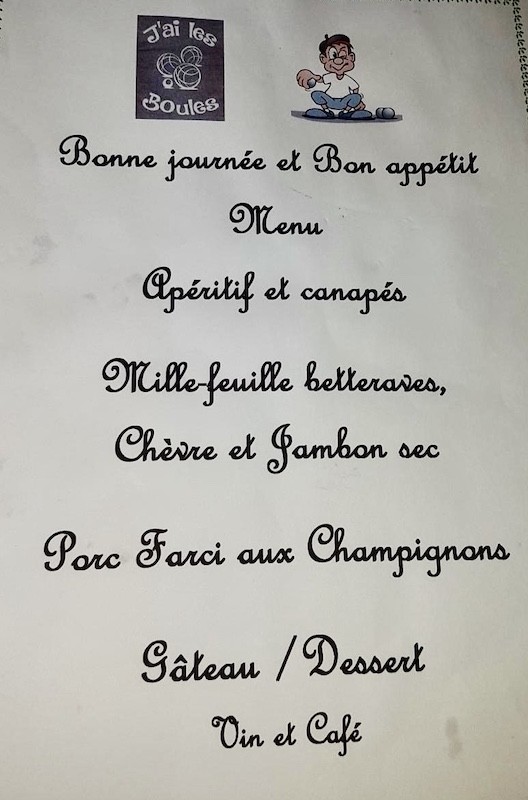 J'ai les
Boules
Bonne journée et Bon appétit
Menu
Apéritif et canapés
Mille-feuille betteraves,
Chèvre et Jambon sec
Porc Farci aux Champignons
Gâteau / Dessert
Vin et Café